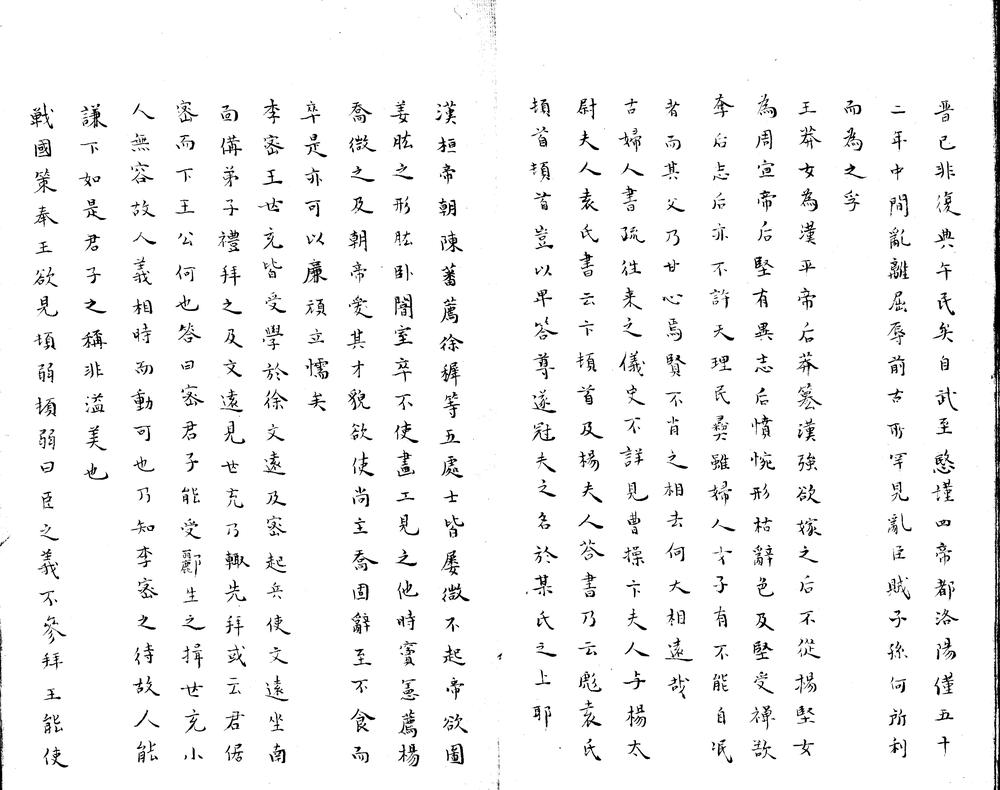 晉已非復典午氏矣自武至愍堇四帝都洛陽僅五十
二年中間亂離屈辱前古所罕見亂臣賊子孫何所利
而為之乎
王莽女為漢平帝后莽簒漢強欲嫁之后不從楊堅女
為周宣帝后堅有異志后憤惋形枯辭色及堅受禪欲
奪后志后亦不許天理民彞雖婦人女子有不能自泯
者而其父乃甘心焉賢不肖之相去何大相遠哉
古婦人書疏徃来之儀史不詳見曹操卞夫人与楊太
尉夫人袁氏書云卞頓首及楊夫人荅書乃云彪袁氏
頓首頓首豈以卑荅尊遂冠夫之名於某氏之上耶
漢桓帝朝陳蕃薦徐穉等五處士皆屢徴不起帝欲圖
姜肱之形肱卧闇室卒不使畫工見之他時竇憲薦楊
喬徴之及朝帝愛其才貌欲使尚主喬固辭至不食而
卒是亦可以廉頑立懦矣
李密王世充皆受學於徐文遠及密起兵使文遠坐南
面備弟子禮拜之及文遠見世充乃輙先拜或云君倨
密而下王公何也荅曰密君子能受酈生之揖世充小
人無容故人義相時而動可也乃知李密之待故人能
謙下如是君子之稱非溢美也
戰國策奉王欲見頓弱頓弱曰臣之義不參拜王能使